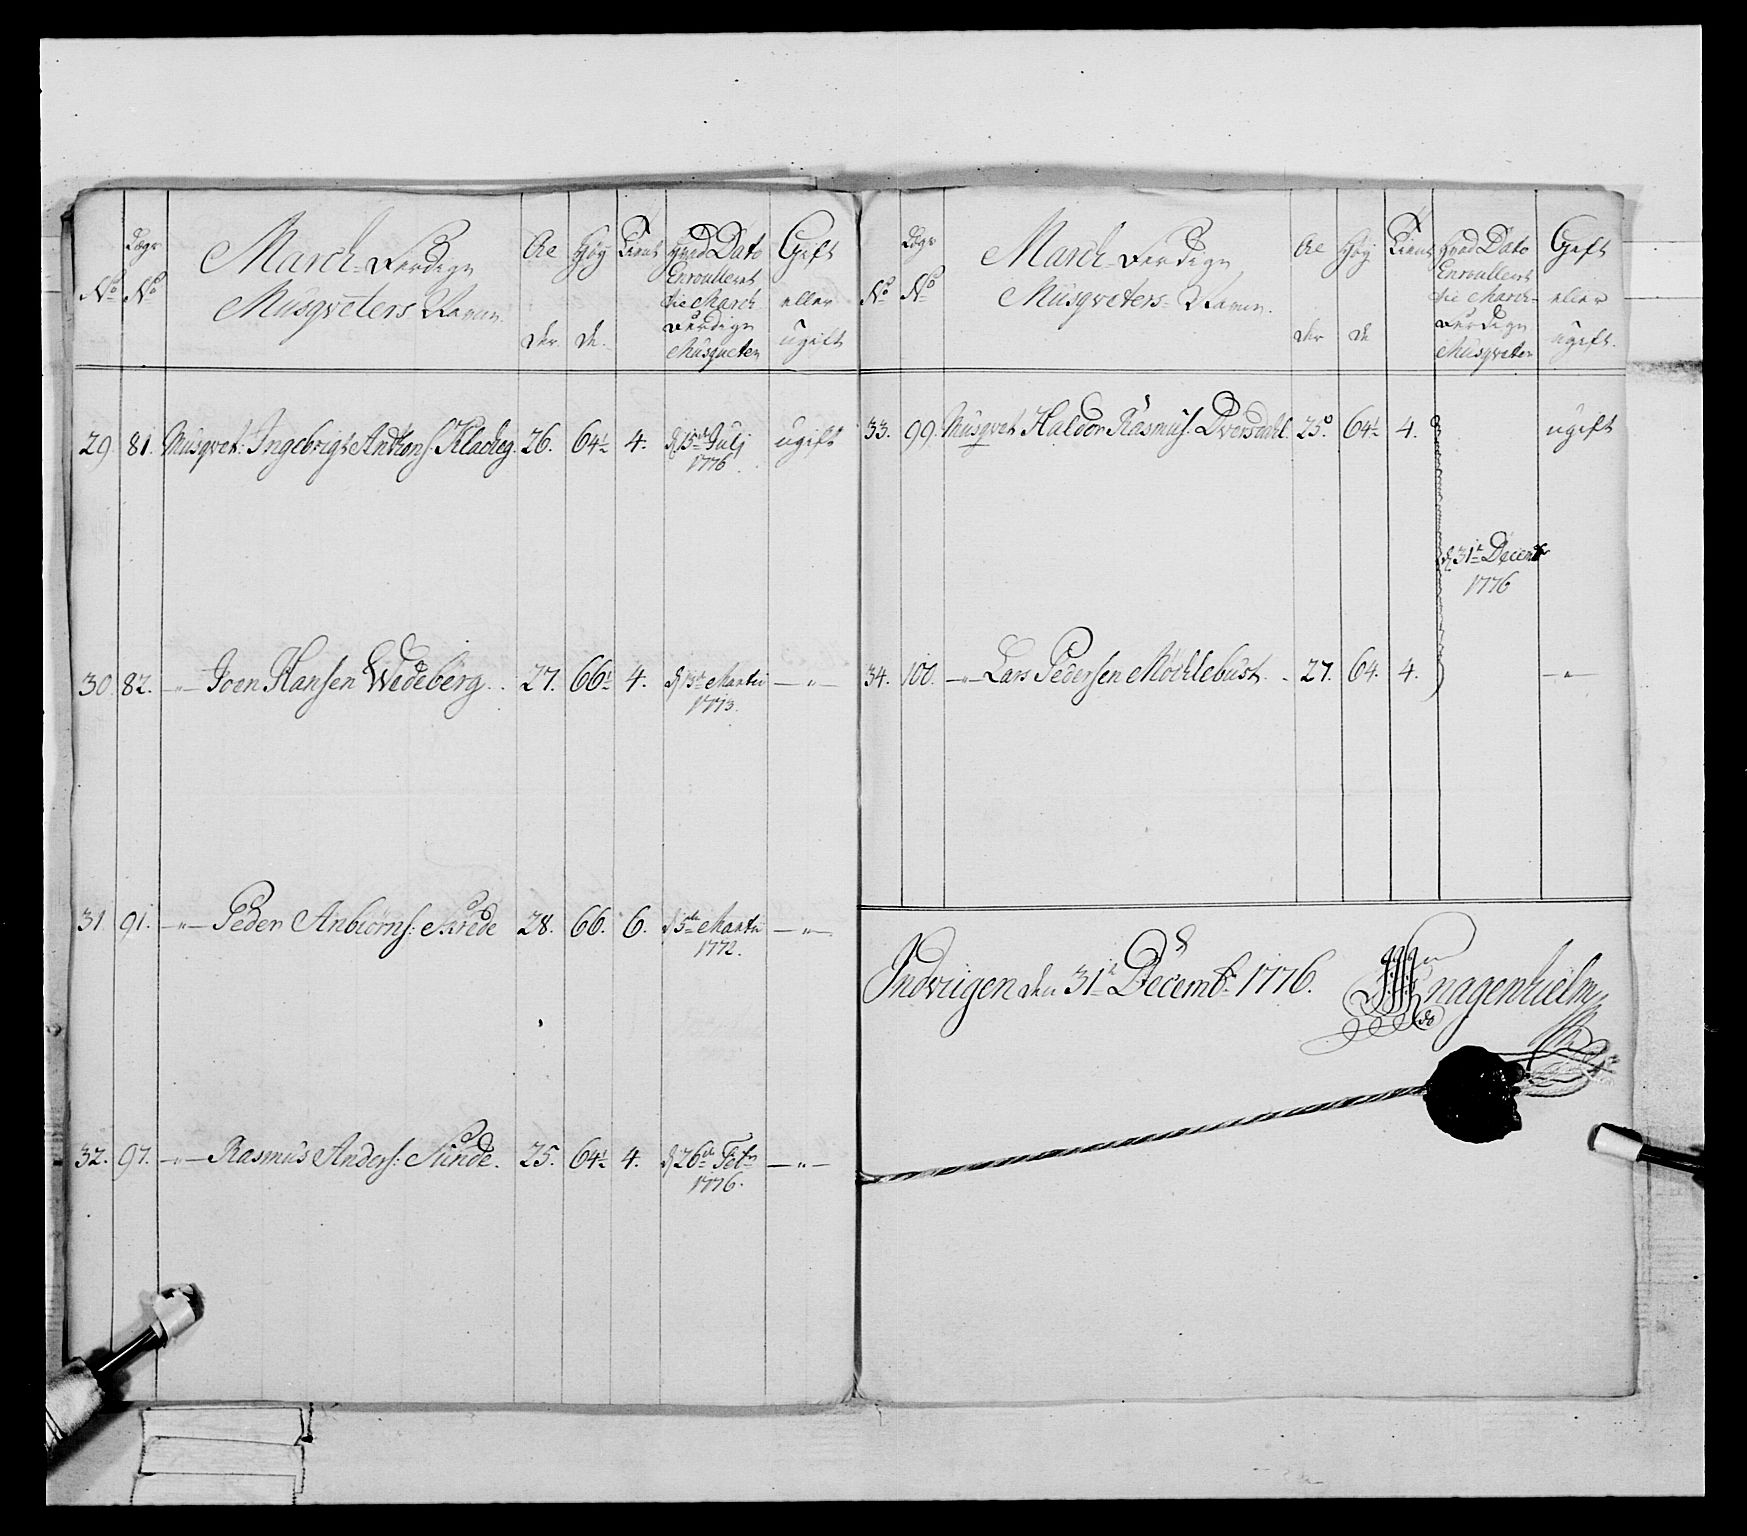 No
Lægs No
March-Færdige Musqveters Navn.
Al der.
Høy de.
Tient
Hvad Dato Enroulleret tie March færdige Musqueter
Gift eller ugift
29. 81. Musqvet: Ingebrigt Anthons: Klacheg. 26. 64½ 4. d 15de Julj 1776. ugift
30. 82. —"— Joen Hansen Wedeberg. 27. 66½ 4. d 15de Martii 1773. —"—
31. 91. —"— Peder Anbiørns: 28. 66. 6. d 5te Martii 1772. —"—
32. 97. —"— Rasmus Anders: Sunde. 25. 64½ 4. d 26de Febr 1776. —"—
No
Lægs No
March-Færdige Musqveters-Navn.
Al der
Høy de
Tient
Hvad Dato Enroullert tie March-færdige Musqveter
Gift eller ugift.
33. 99. Musqvet Haldor Rasmus: Dversdahl. 25. 64½ 4. ugift
d 31te Decembr 1776
34. 100. —"— Lars Pedersen Møchlebust. 27. 64. 4. —"—
Indvigen den 31te Decembr 1776.
Knagenhielm